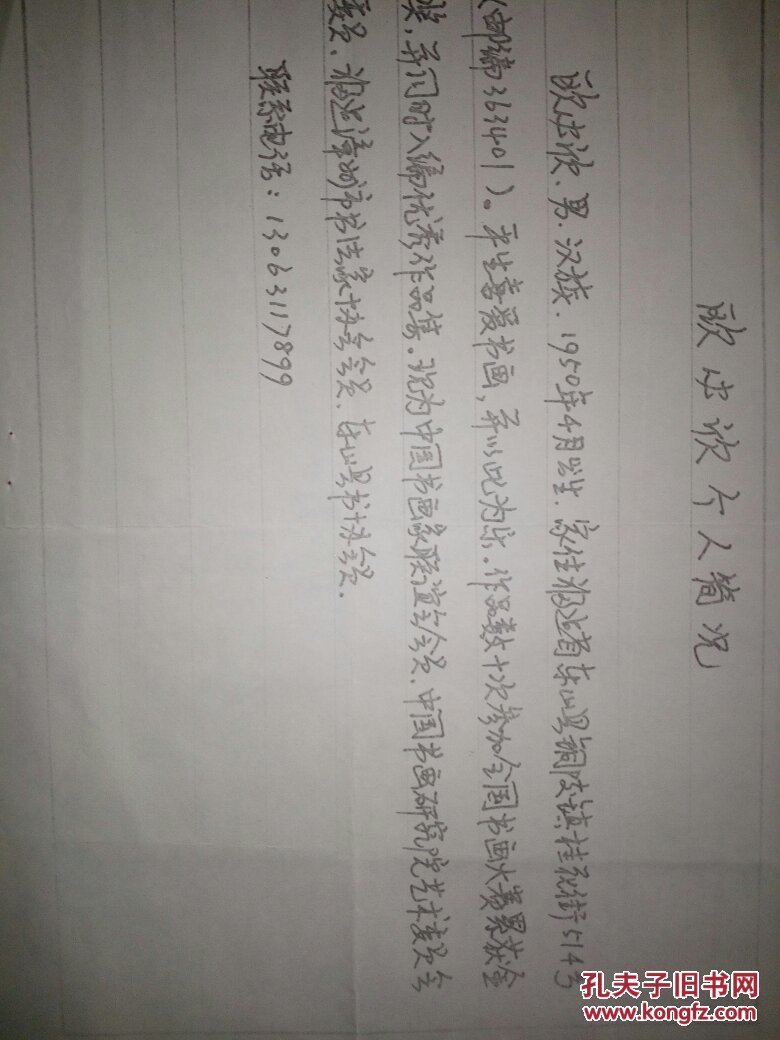 欧忠欣个人简况
欧忠欣、男、汉族、1950年4月出生、家住福建省东山县铜陵镇桂花街514号
(邮编363401)。平生喜爱书画,并以此为乐。作品数十次参加全国书画大赛累获金
奖,并同时入编优秀作品集。现为中国书画家联谊会会员、中国书画研究院艺术委员会
委员、福建漳州市书法家协会会员、东山县书协会员。
联系电话:13063117899
孔夫子旧书网
www.kongfz.com